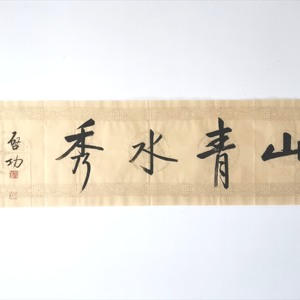 山青水秀
啓功